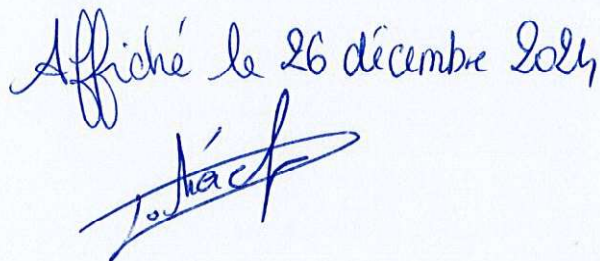 Affiché le 26 décembre 2024